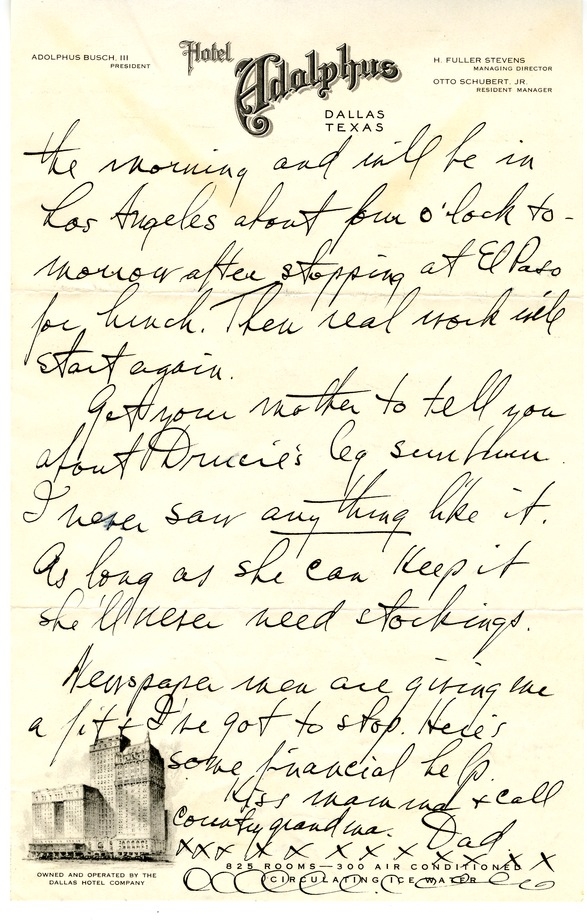 ADOLPHUS BUSCH, III
PRESIDENT
Hotel
Adolphus
DALLAS
TEXAS
H. FULLER STEVENS
MANAGING DIRECTOR
OTTO SCHUBERT, JR.
RESIDENT MANAGER
the morning and will be in
Los Angeles about four o'lock to-
morrow after stopping at El Paso
for lunch. Then real work will
start again.
Get your mother to tell you
about Drucie's leg sunburn.
I never saw anything like it.
As long as she can keep it
she'll never need stockings.
Newspaper men are giving me
a fit & I've got to stop. Here's
some financial help.
Kiss mamma & call
country grandma. Dad.
X X X X X X X X X X X X X
825 ROOMS—300 AIR CONDITIONED
CIRCULATING ICE WATER
OWNED AND OPERATED BY THE
DALLAS HOTEL COMPANY